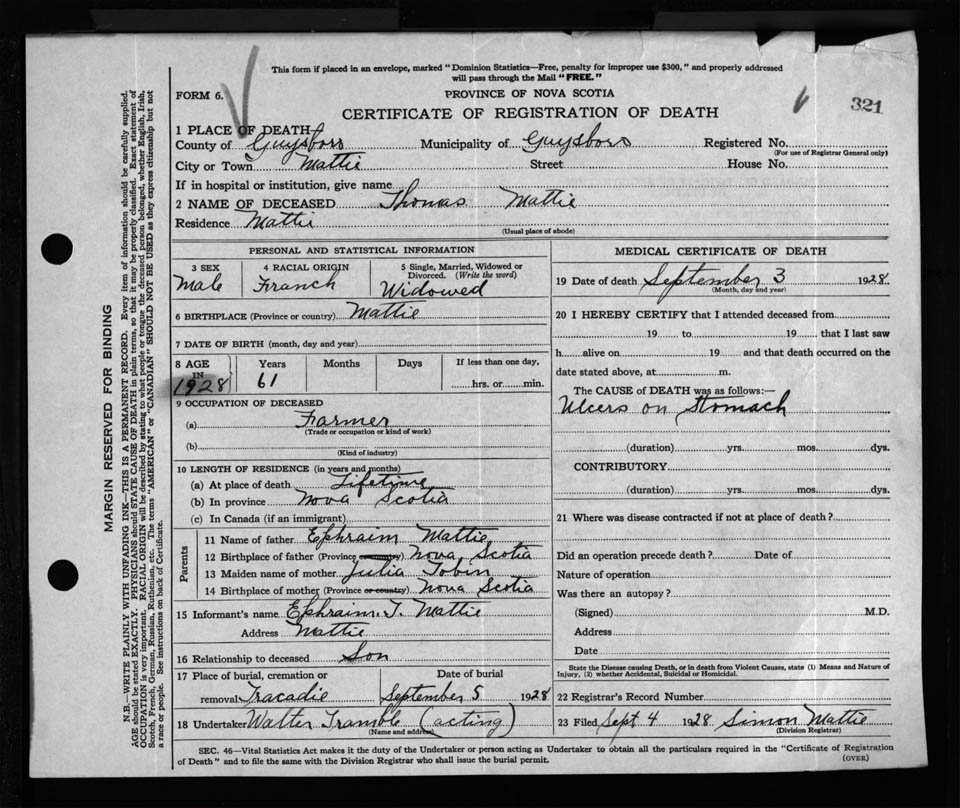 This form if placed in an envelope, marked "Dominion Statistics—Free, penalty for improper use $300," and properly addressed
will pass through the Mail "FREE."
FORM 6.
PROVINCE OF NOVA SCOTIA
321
CERTIFICATE OF REGISTRATION OF DEATH
1 PLACE OF DEATH
County of Guysboro Municipality of Guysboro Registered No.
(For use of Registrar General only)
City or Town Mattie Street House No.
If in hospital or institution, give name
2 NAME OF DECEASED Thomas Mattie
Residence Mattie
(Usual place of abode)
PERSONAL AND STATISTICAL INFORMATION
3 SEX 4 RACIAL ORIGIN 5 Single, Married, Widowed or
Divorced. (Write the word)
Male Franch Widowed
6 BIRTHPLACE (Province or country) Mattie
7 DATE OF BIRTH (month, day and year)
8 AGE Years Months Days If less than one day,
IN
1928 61 hrs. or min.
9 OCCUPATION OF DECEASED
(a) Farmer
(Trade or occupation or kind of work)
(b)
(Kind of industry)
10 LENGTH OF RESIDENCE (in years and months)
(a) At place of death Lifetime
(b) In province Nova Scotia
(c) In Canada (if an immigrant)
Parents
11 Name of father Ephraim Mattie
12 Birthplace of father (Province or country) Nova Scotia
13 Maiden name of mother Julia Tobin
14 Birthplace of mother (Province or country) Nova Scotia
15 Informant's name Ephraim T. Mattie
Address Mattie
16 Relationship to deceased Son
17 Place of burial, cremation or Date of burial
removal Tracadie September 5 1928
18 Undertaker Walter Tramble (acting)
(Name and address)
MEDICAL CERTIFICATE OF DEATH
19 Date of death September 3 1928
(Month, day and year)
20 I HEREBY CERTIFY that I attended deceased from
19 to 19 that I last saw
h alive on 19 and that death occurred on the
date stated above, at m.
The CAUSE of DEATH was as follows:—
Ulcers on Stomach
(duration) yrs. mos. dys.
CONTRIBUTORY
(duration) yrs. mos. dys.
21 Where was disease contracted if not at place of death?
Did an operation precede death? Date of
Nature of operation
Was there an autopsy?
(Signed) M.D.
Address
Date
State the Disease causing Death, or in death from Violent Causes, state (1) Means and Nature of
Injury, (2) whether Accidental, Suicidal or Homicidal.
22 Registrar's Record Number
23 Filed Sept 4 1928 Simon Mattie
(Division Registrar)
SEC. 46—Vital Statistics Act makes it the duty of the Undertaker or person acting as Undertaker to obtain all the particulars required in the "Certificate of Registration
of Death" and to file the same with the Division Registrar who shall issue the burial permit.
(OVER)
MARGIN RESERVED FOR BINDING
N.B.—WRITE PLAINLY WITH UNFADING INK—THIS IS A PERMANENT RECORD. Every item of information should be carefully supplied.
AGE should be stated EXACTLY. PHYSICIANS should STATE CAUSE OF DEATH in plain terms, so that it may be properly classified. Exact statement of
OCCUPATION is very important. RACIAL ORIGIN will be described by stating to what people or tongue the deceased person belonged, whether English, Irish,
Scotch, French, German, Russian, Ruthenian, etc. The terms "AMERICAN" or "CANADIAN" SHOULD NOT BE USED as they express citizenship but not
a race or people. See instructions on back of Certificate.